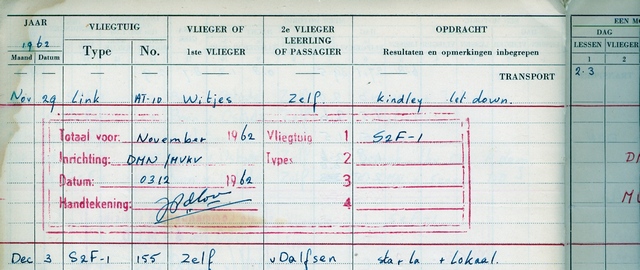 JAAR VLIEGTUIG VLIEGER OF 2e VLIEGER OPDRACHT EEN MO
1962 LEERLING DAG
Type No. 1ste VLIEGER OF PASSAGIER Resultaten en opmerkingen inbegrepen LESSEN VLIEGER
Maand Datum 1 2
TRANSPORT 2.3
Nov 29 Link AT-10 Witjes Zelf. Kindley let down.
Totaal voor: November 1962 Vliegtuig 1 S2F-1
Inrichting: DMN/MVKV Types 2
Datum: 0312 1962 3
Handtekening: 4
Dec 3 S2F-1 155 Zelf v Dalfsen sta-la + Lokaal.